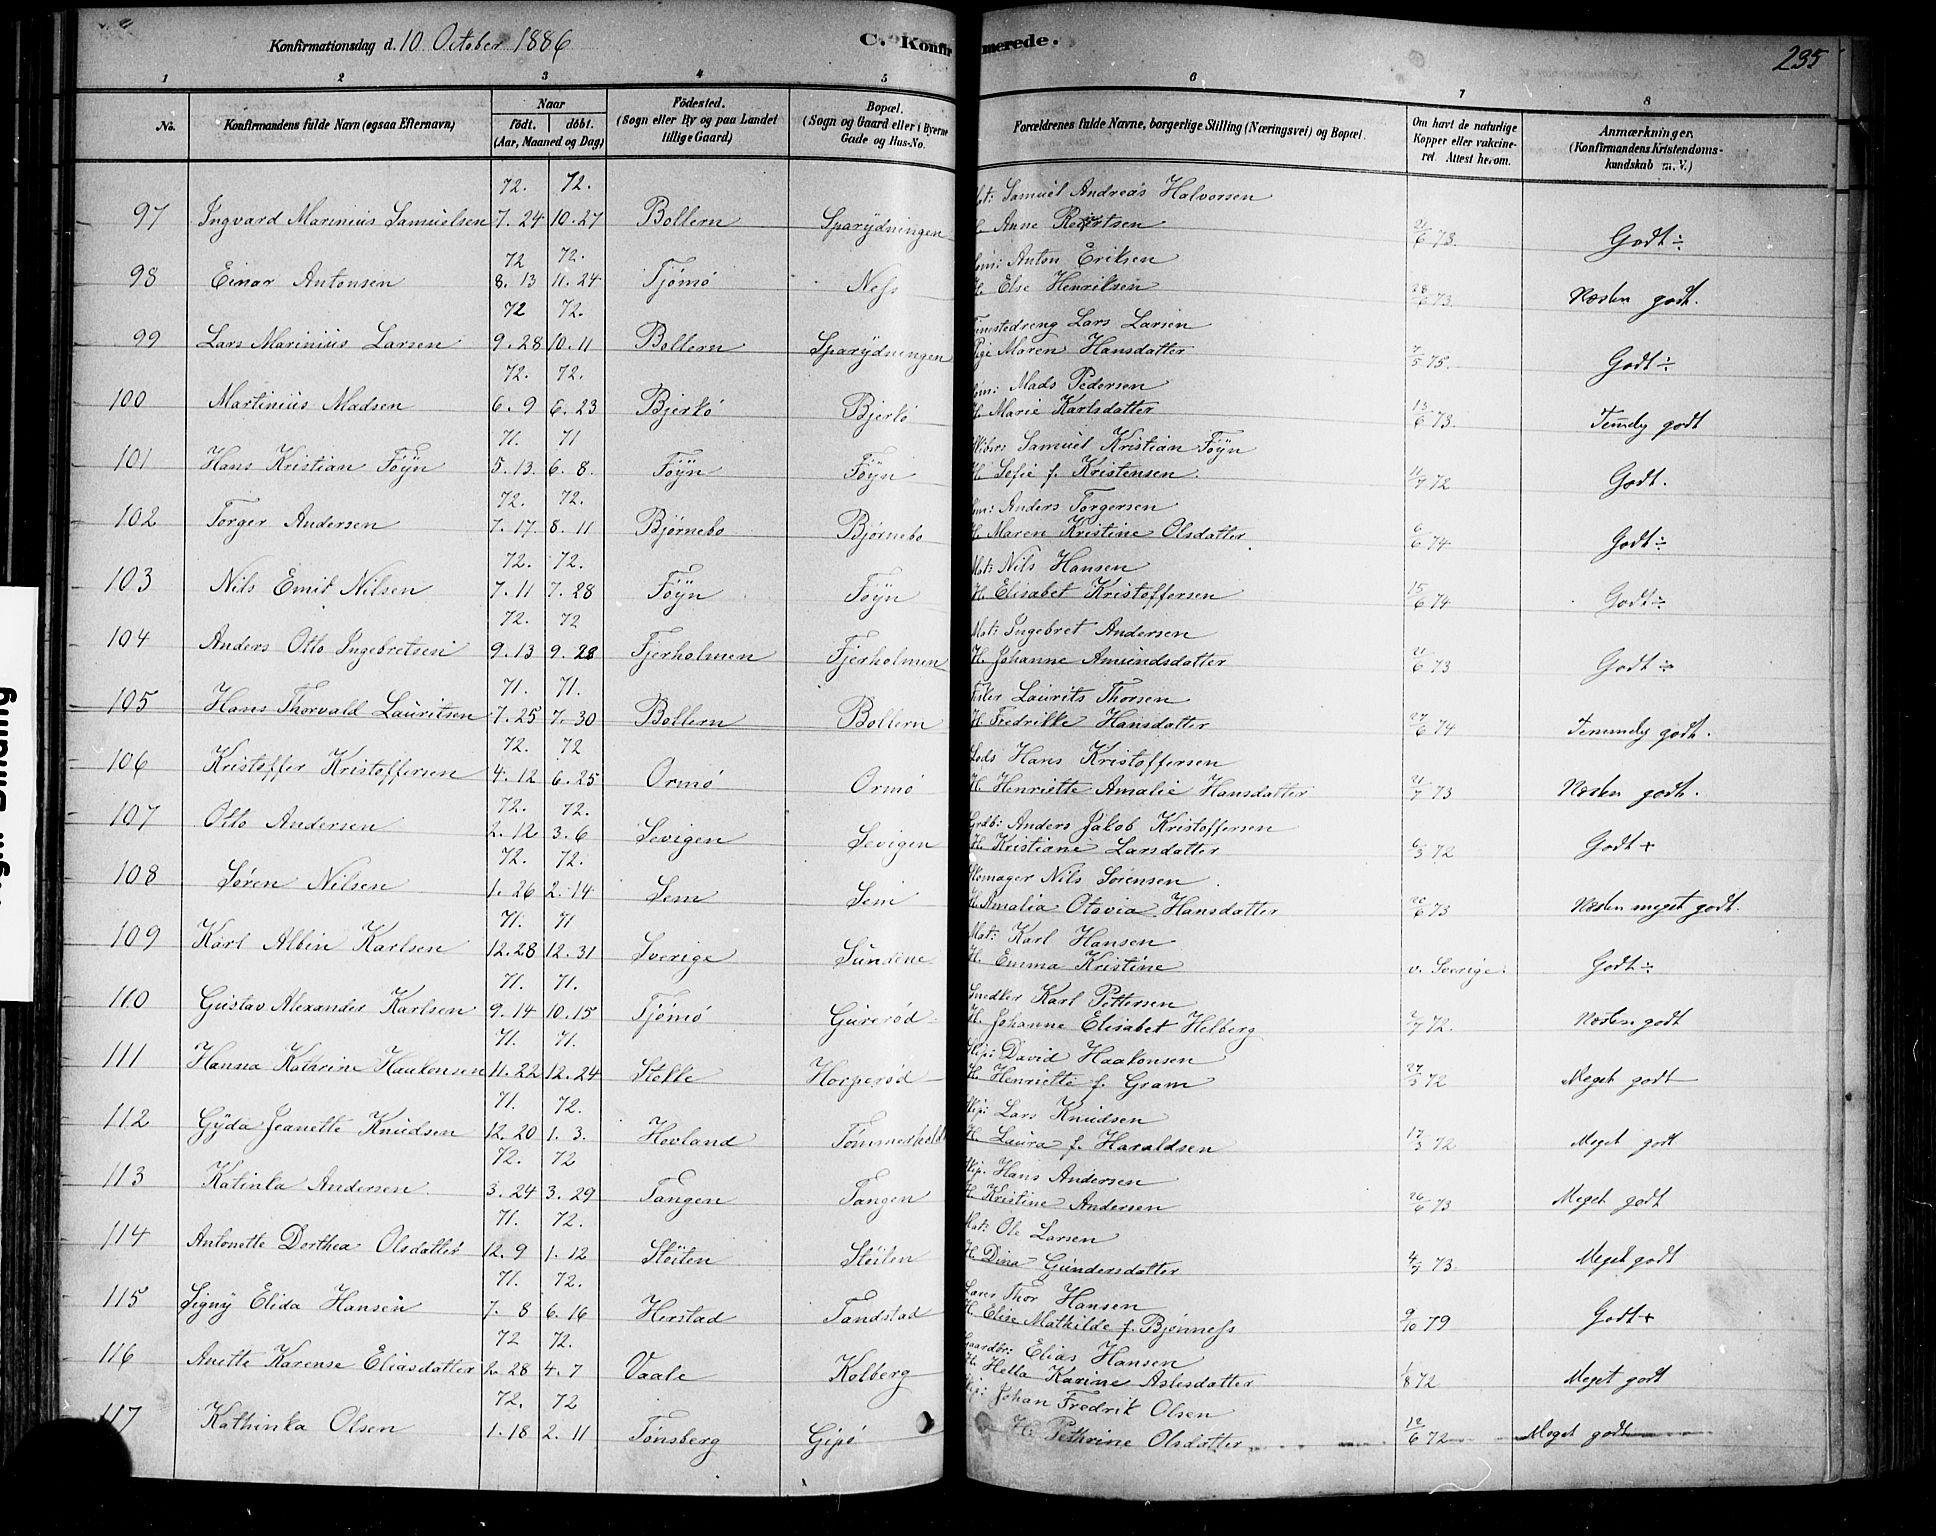 Konfirmationsdag d. 10 October 1886 C. Konfirmerede. 235
1 2 3 4 5 6 7 8
No. Konfirmandens fulde Navn (ogsaa Efternavn) Naar født. døbt. (Aar, Maaned og Dag) Födested. (Sogn eller By og paa Landet tillige Gaard) Bopæl. (Sogn og Gaard eller i Byerne Gade og Hus-No. Forældrenes fulde Navne, borgerlige Stilling (Næringsvei) og Bopæl. Om havt de naturlige Kopper eller vakcineret. Attest herom. Anmærkninger. (Konfirmandens Kristendomskundskab m. V.)
72. 72. Mat: Samuel Andreas Halvorsen
97 Ingvard Marinius Samuelsen 7. 24 10. 27 Bollern Sparydningen H. Anne 21/6 73. Godt ÷
72 72. Anton Eriksen
98 Einar Antonsen 8. 13 11. 24 Tjømø Ness H. Else Henriksen 28/6 73. Næsten godt.
72 72. Tjenestedreng Lars Larsen
99 Lars Marinius Larsen 9. 28 10. 11 Bollern Sparydningen Pige Maren Hansdatter 7/5 75. Godt ÷
72. 72. Mads Pedersen
100 Martinius Madsen 6. 9 6. 23 Bjerkø Bjerkø H. Marie Karlsdatter 13/6 73. Temmely godt
71. 71 Skibsr: Samuel Kristian Føyn
101 Hans Kristian Føyn 5. 13. 6. 8. Føyn Føyn H. Sofie f. Kristensen. 11/7 72 Godt.
72. 72. Anders Torgersen
102 Torger Andersen 7. 17. 8. 11 Bjørnebo Bjørnebo H. Maren Kristine Olsdatter 6/6 74 Godt ÷
72. 72. Mat: Nils Hansen
103 Nils Emil Nilsen 7. 11 7. 28 Føyn Føyn H. Elisabet Kristoffersen 15/6 74 Godt ÷
72. 72 Mat: Ingebret Andersen
104 Anders Otto Ingebretsen 9. 13 9. 28 Fjerholmen Fjerholmen H. Johanne Amundsdatter 21/6 73 Godt ÷
71. 71. Fisker Laurits Thorsen
105 Hans Thorvald Lauritsen 7. 25 7. 30 Bollern Bollern H. Fredrikke Hansdatter 27/6 74 Temmely godt.
72. 72 Lods Hans Kristoffersen
106 Kristoffer Kristoffersen 4. 12 6. 25 Ormø Ormø H. Henriette Amalie Hansdatter 21/7 73 Næsten godt.
72. 72. Grdb: Anders Jakob Kristoffersen
107 Otto Andersen 2. 12 3. 6 Sevigen Sevigen H. Kristiane Larsdatter 6/3 72 Godt +
72. 72. Skomager Nils Sørensen
108 Søren Nilsen 1. 26 2. 14 Sem Sem H. Amalia Otavia Hansdatter 20/6 73 Næsten meget godt.
71. 71 Mat: Karl Hansen
109 Karl Albin Karlsen 12. 28 12. 31 Sverige Sundene H. Emma Kristine v. Sverige. Godt ÷
71. 71. Snedker Karl Pettersen
110 Gustav Alexander Karlsen 9. 14 10. 15 Tjømø Gurerød H. Johanne Elisabet Helberg 2/7 72. Næsten godt
71. 71. Skip: David Haakonsen
111 Hanna Kathrine Haakonsen 11. 22 12. 24 Stokke Horperød H. Henriette f. Gram 27/5 72 Meget godt
71. 72. Skip: Lars Knudsen
112 Gyda Jeanette Knudsen 12. 20 1. 3. Hovland Tømmerholdt H. Laura f. Haraldsen 17/3 72 Meget godt
72. 72 Skip. Hans Andersen
113 Katinka Andersen 3. 24 3. 29 Tangen Tangen H. Kristine Andersen 26/6 73 Meget godt
71. 72. Mat: Ole Larsen
114 Antonette Dorthea Olsdatter 12. 9 1. 12 Støiten Støiten H. Dina Gundersdatter 4/7 73. Meget godt
71. 72. Thor Hansen
115 Signy Elida Hansen 7. 8 6. 16 Herstad Tandstad H. Elise Mathilde f. Bjønness 9/10 79 Godt +
72 72. Gaardbr: Elias Hansen
116 Anette Karense Eliasdatter 2. 28 4. 7 Vaale Kolberg H. Hella Karine Aslesdatter 1/8 72 Meget godt
72. 72 Skip: Johan Fredrik Olsen
117 Kathinka Olsen 1. 18 2. 11 Tønsberg Gipø H. Pethrine Olsdatter 12/6 72 Meget godt